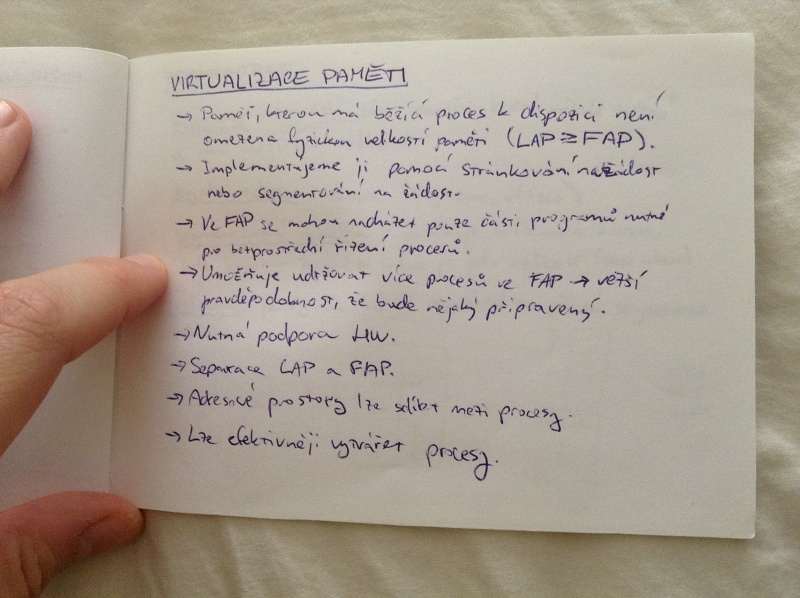 VIRTUALIZACE PAMĚTI
→ Paměť, kterou má běžící proces k dispozici není
omezena fyzickou velikostí paměti (LAP ≥ FAP).
→ Implementujeme ji pomocí stránkování na žádost
nebo segmentování na žádost.
→ Ve FAP se mohou nacházet pouze části programů nutné
pro bezprostřední řízení procesů.
→ Umožňuje udržovat více procesů ve FAP → větší
pravděpodobnost, že bude nějaký připravený.
→ Nutná podpora HW.
→ Separace LAP a FAP.
→ Adresové prostory lze sdílet mezi procesy.
→ Lze efektivněji vytvářet procesy.